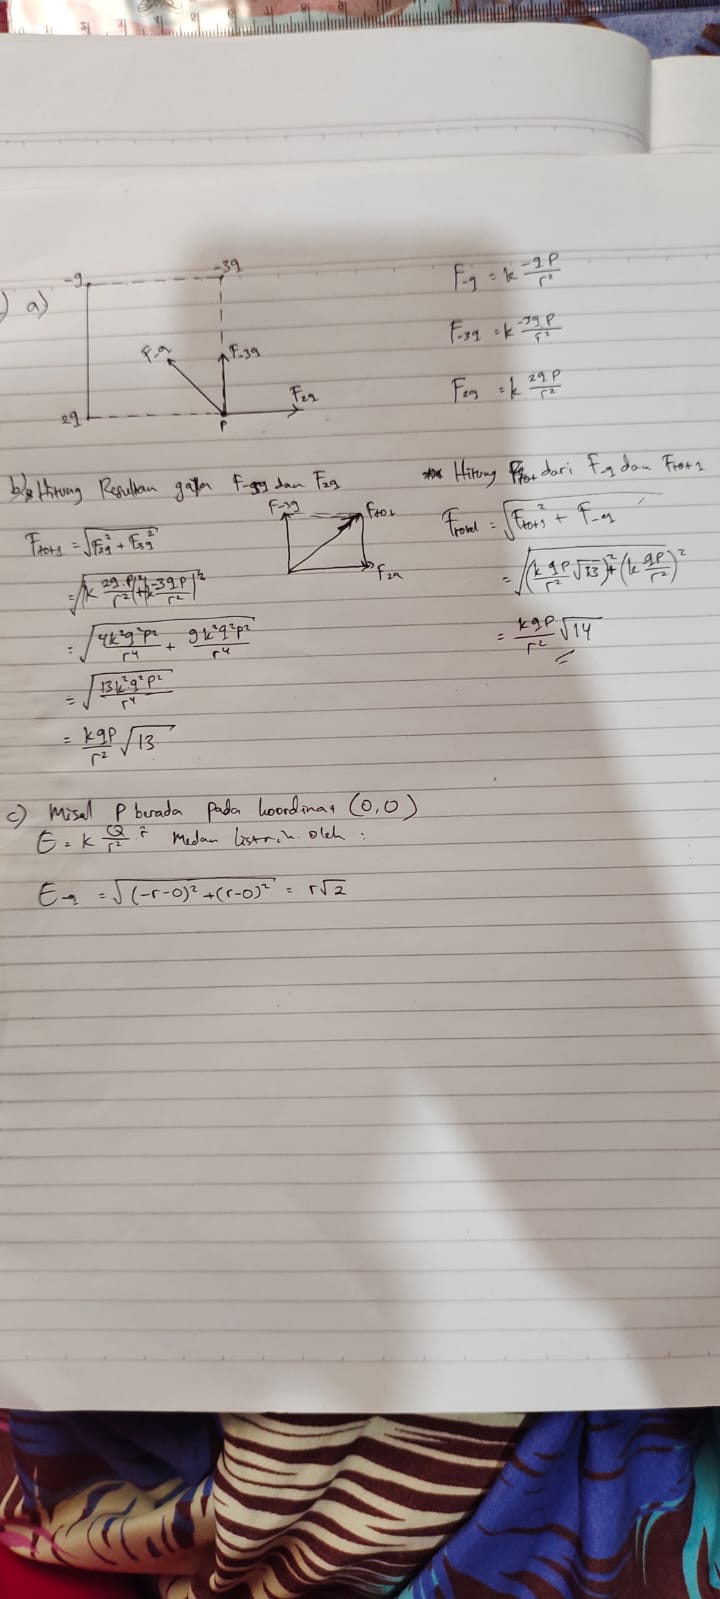 a)
-q
-3q
F-q
F-3q
2q
P
F2q
F-q = k -qP/r²
F-3q = k -3qP/r²
F2q = k 2qP/r²
b) Hitung Resultan gaya F-3q dan F2q
F-3q
Ftot1
F2q
Ftot1 = √(F2q² + F3q²)
= √((k 2q.P/r²)² + (k -3qP/r²)²)
= √(4k²q²p²/r⁴ + 9k²q²p²/r⁴)
= √(13k²q²p²/r⁴)
= kqp/r² √13
Hitung Ftot dari F-q dan Ftot1
Ftotal = √(Ftot1² + F-q
= √((k qP/r² √13)² + (k qP/r²)²)
= kqp/r² √14
c) Misal P berada pada koordinat (0,0)
E = k Q/r² r̂ Medan listrik oleh :
E-q = √((-r-0)² + (r-0)²) = r√2